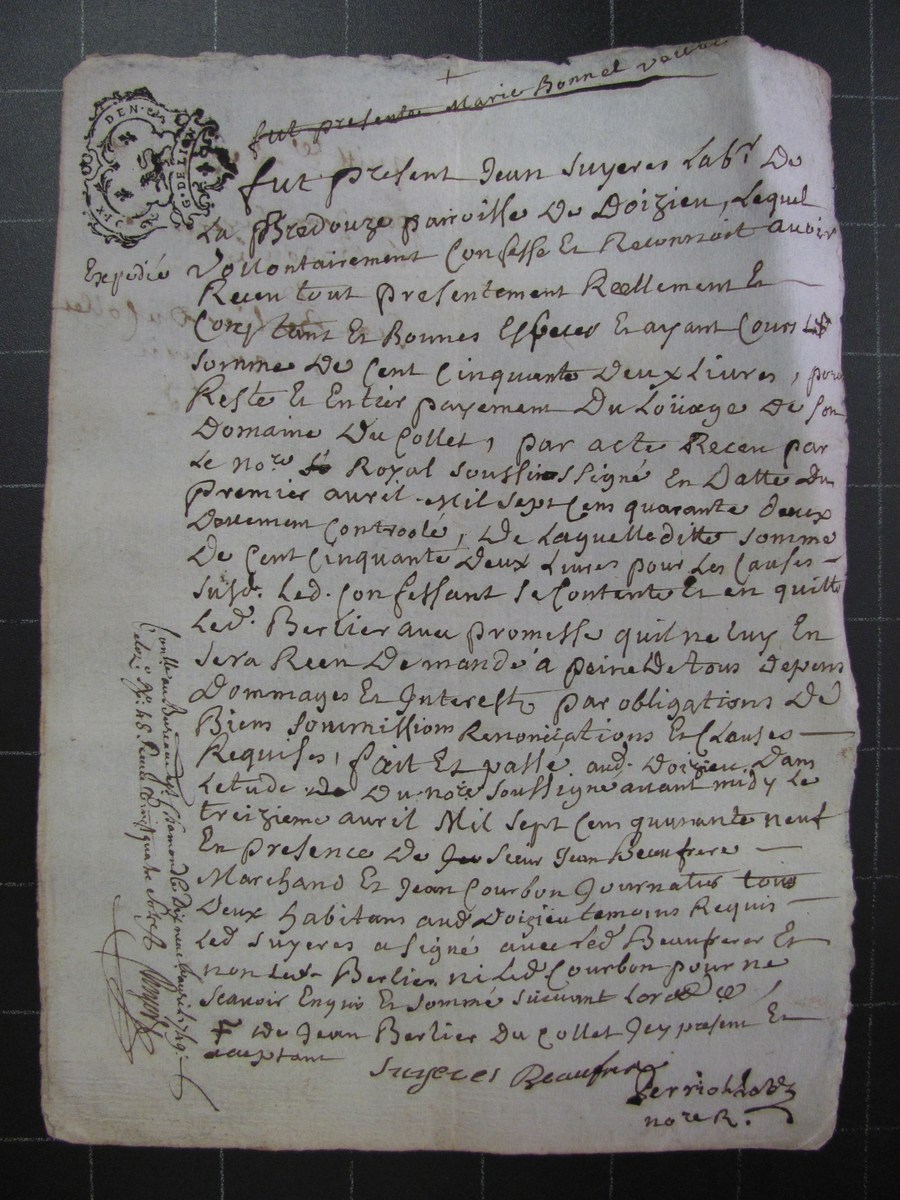 fut presente Marie Bonnel
fut present Jean Suyeres Labr. De
La Bredouze parroisse De Doizieu, Lequel
Vollontairement Confesse Et Reconnoit avoir
Expedié
Receu tout presentement Reellement Et
Comptant Et Bonnes Especes Et ayant Cours ⵌ La
somme De Cent Cinquante Deux Livres, pour
Reste Et Entier payement Du Loüage De son
Domaine Du Collet, par acte Receu par
Le nore Royal soussinssigné En Datte Du
premier avril Mil sept Cens quarante deux
Deuement Controolé, De Laquelleditte somme
De Cent Cinquante Deux Livres pour Les Causes
susd. Led. Confessant se Contente Et en quitte
Led. Berlier avec promesse quil ne luy En
sera Rien Demandé a peine De tous depens
Dommages Et Interest par obligations De
Biens soummissions Renonciations Et Clauses
Requises, fait Et passé aud. Doizieu Dans
Letude Du nore soussigné avant midy Le
treizieme avril Mil sept Cens quarante neuf
En presence De Sieur Jean Beaufrere
Marchand Et Jean Courbon Journalier tous
Deux habitans aud Doizieu temoins Requis
Led Suyeres a signé avec Led Beaufrere Et
non Led. Berlier ni Led Courbon pour ne
Scavoir Enquis Et sommé suivant Lord
ⵌ De Jean Berlier Du Collet Icy present Et
acceptant
Suyeres Beaufrere
nore R.
au Bureau de St. Chamond Le Dix neuf avril 1749
DEN.
DE LION